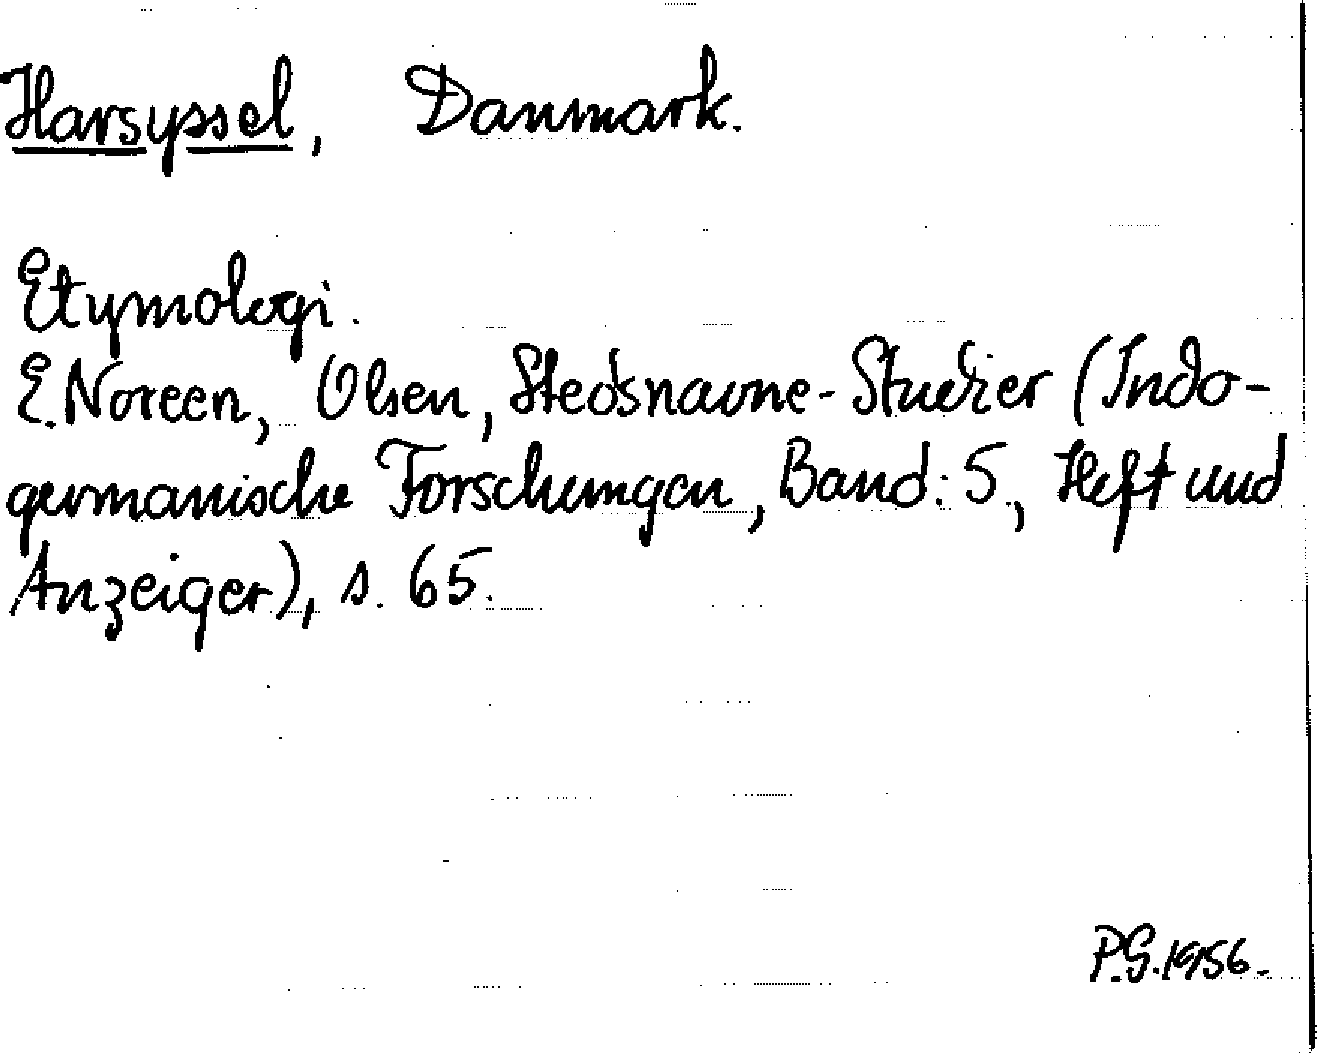 Harsyssel, Danmark.
Etymologi.
E. Noreen, Olsen, Stedsnavne-Studier (Indo-
germanische Forschungen, Band: 5., Heft und
Anzeiger), s. 65.
P.G. 1956.